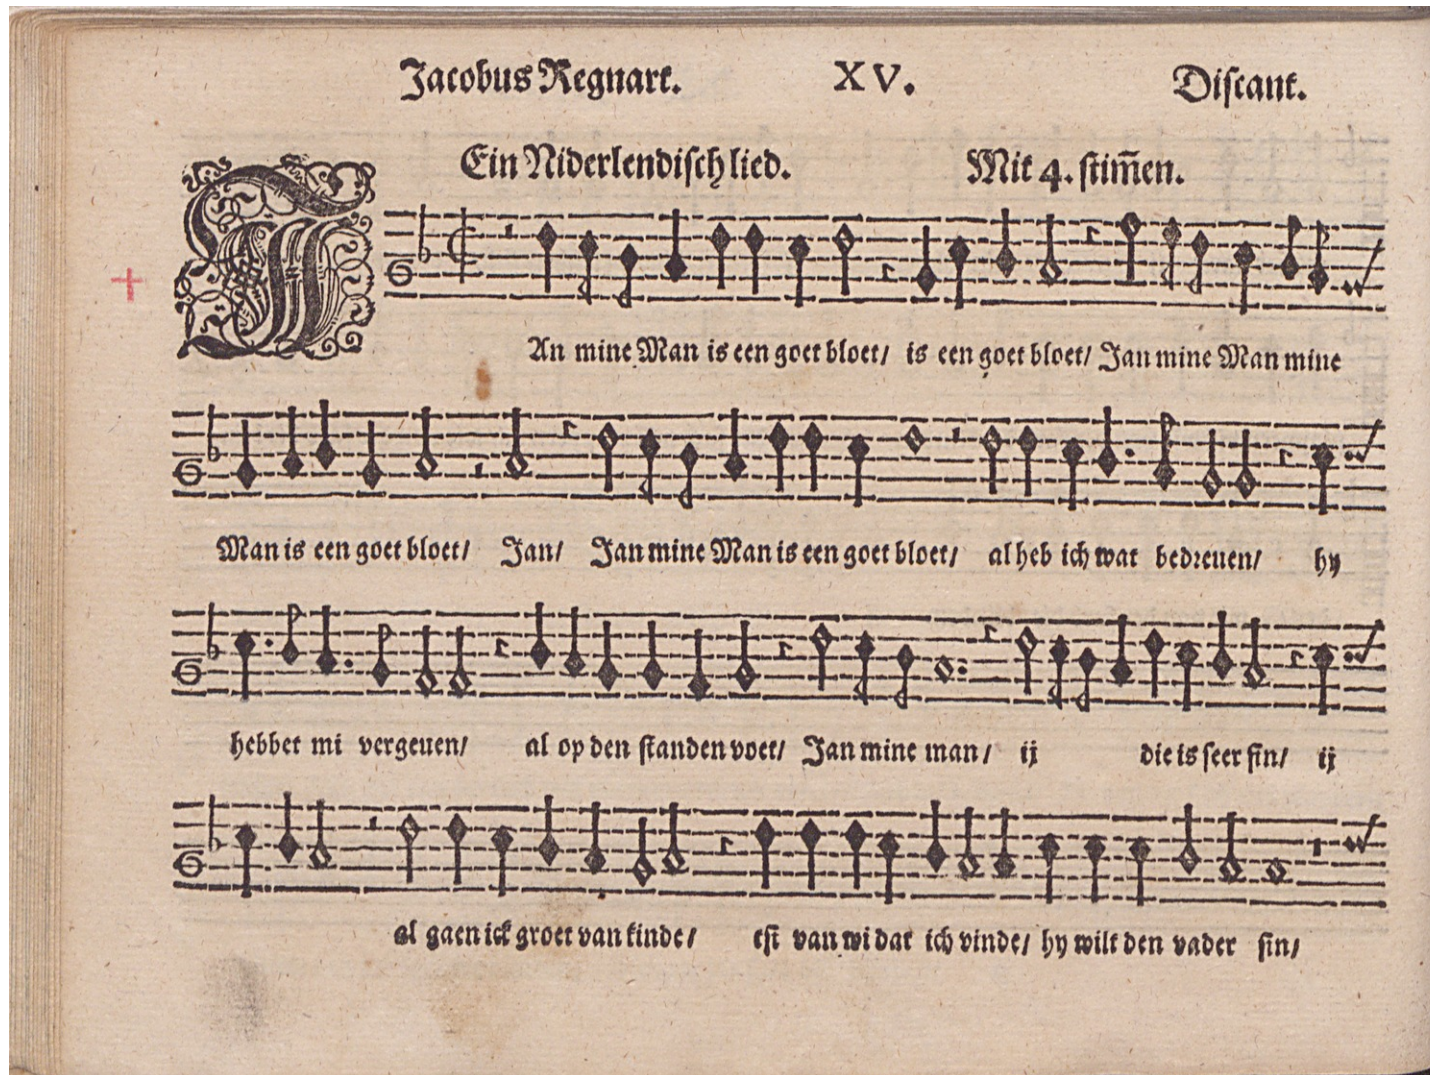 Jacobus Regnart. XV. Discant.
Ein Niderlendisch lied. Mit 4. stim̄en.
JAn mine Man is een goet bloet/ is een goet bloet/ Jan mine Man mine
Man is een goet bloet/ Jan/ Jan mine Man is een goet bloet/ al heb ich wat bedreuen/ hy
hebbet mi vergeuen/ al op den standen voet/ Jan mine man/ ij die is seer fin/ ij
al gaen ick groet van kinde/ tst van wi dat ich vinde/ hy wilt den vader sin/